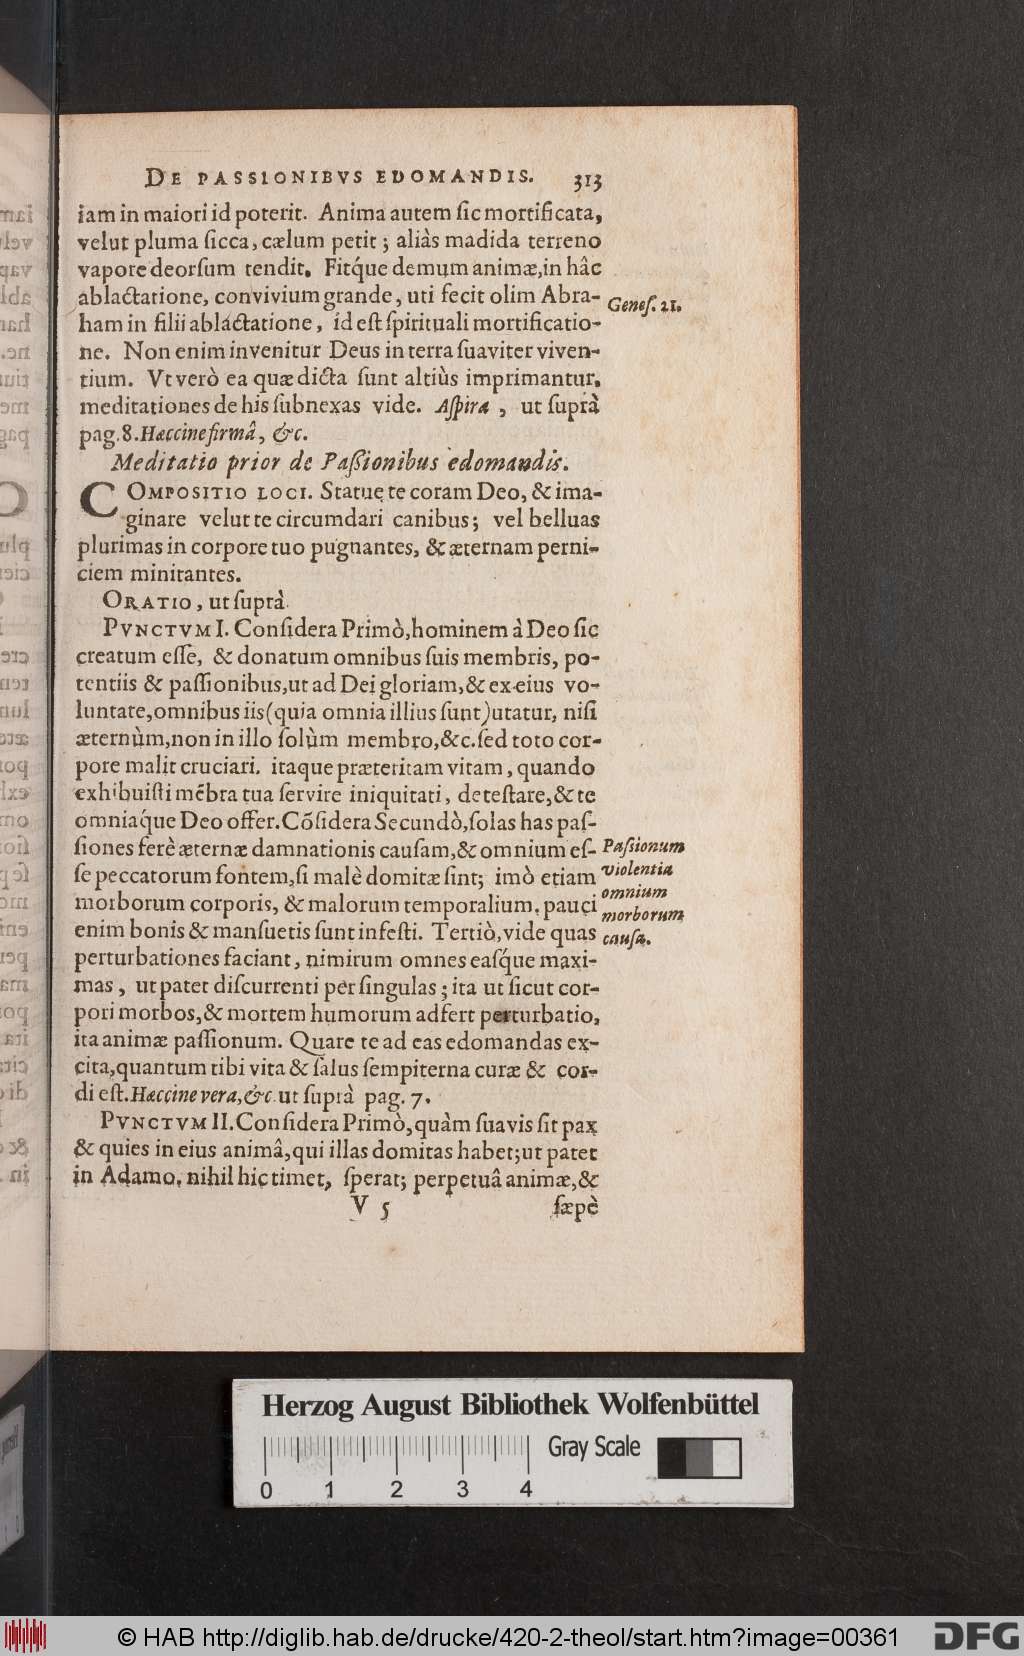 DE PASSIONIBVS EDOMANDIS. 313
iam in maiori id poterit. Anima autem ſic mortificata,
velut pluma ſicca, cælum petit; aliàs madida terreno
vapore deorſum tendit. Fitq́ue demum animæ, in hâc
ablactatione, convivium grande, uti fecit olim Abra-
ham in filii ablactatione, id eſt ſpirituali mortificatio-
ne. Non enim invenitur Deus in terra ſuaviter viven-
tium. Vt verò ea quæ dicta ſunt altiùs imprimantur,
meditationes de his ſubnexas vide. Aſpira, ut ſuprà
pag. 8. Hæccine firmâ, &c.
Geneſ. 21.
Meditatio prior de Paſſionibus edomandis.
COMPOSITIO LOCI. Statue te coram Deo, & ima-
ginare velut te circumdari canibus; vel belluas
plurimas in corpore tuo pugnantes, & æternam perni-
ciem minitantes.
ORATIO, ut ſuprà.
PVNCTVM I. Conſidera Primò, hominem à Deo ſic
creatum eſſe, & donatum omnibus ſuis membris, po-
tentiis & paſſionibus, ut ad Dei gloriam, & ex eius vo-
luntate, omnibus iis (quia omnia illius ſunt) utatur, niſi
æternùm, non in illo ſolùm membro, &c. ſed toto cor-
pore malit cruciari. itaque præteritam vitam, quando
exhibuiſti mẽbra tua ſervire iniquitati, deteſtare, & te
omniaq́ue Deo offer. Cõſidera Secundò, ſolas has paſ-
ſiones ferè æternæ damnationis cauſam, & omnium eſ-
ſe peccatorum fontem, ſi malè domitæ ſint; imò etiam
morborum corporis, & malorum temporalium. pauci
enim bonis & manſuetis ſunt infeſti. Tertiò, vide quas
perturbationes faciant, nimirum omnes eaſq́ue maxi-
mas, ut patet diſcurrenti per ſingulas; ita ut ſicut cor-
pori morbos, & mortem humorum adfert perturbatio,
ita animæ paſſionum. Quare te ad eas edomandas ex-
cita, quantum tibi vita & ſalus ſempiterna curæ & cor-
di eſt. Hæccine vera, &c. ut ſuprà pag. 7.
Paſſionum
violentia
omnium
morborum
cauſa.
PVNCTVM II. Conſidera Primò, quàm ſuavis ſit pax
& quies in eius animâ, qui illas domitas habet; ut patet
in Adamo. nihil hic timet, ſperat; perpetuâ animæ, &
V 5 ſæpè
Herzog August Bibliothek Wolfenbüttel
Gray Scale
0 1 2 3 4
© HAB http://diglib.hab.de/drucke/420-2-theol/start.htm?image=00361
DFG